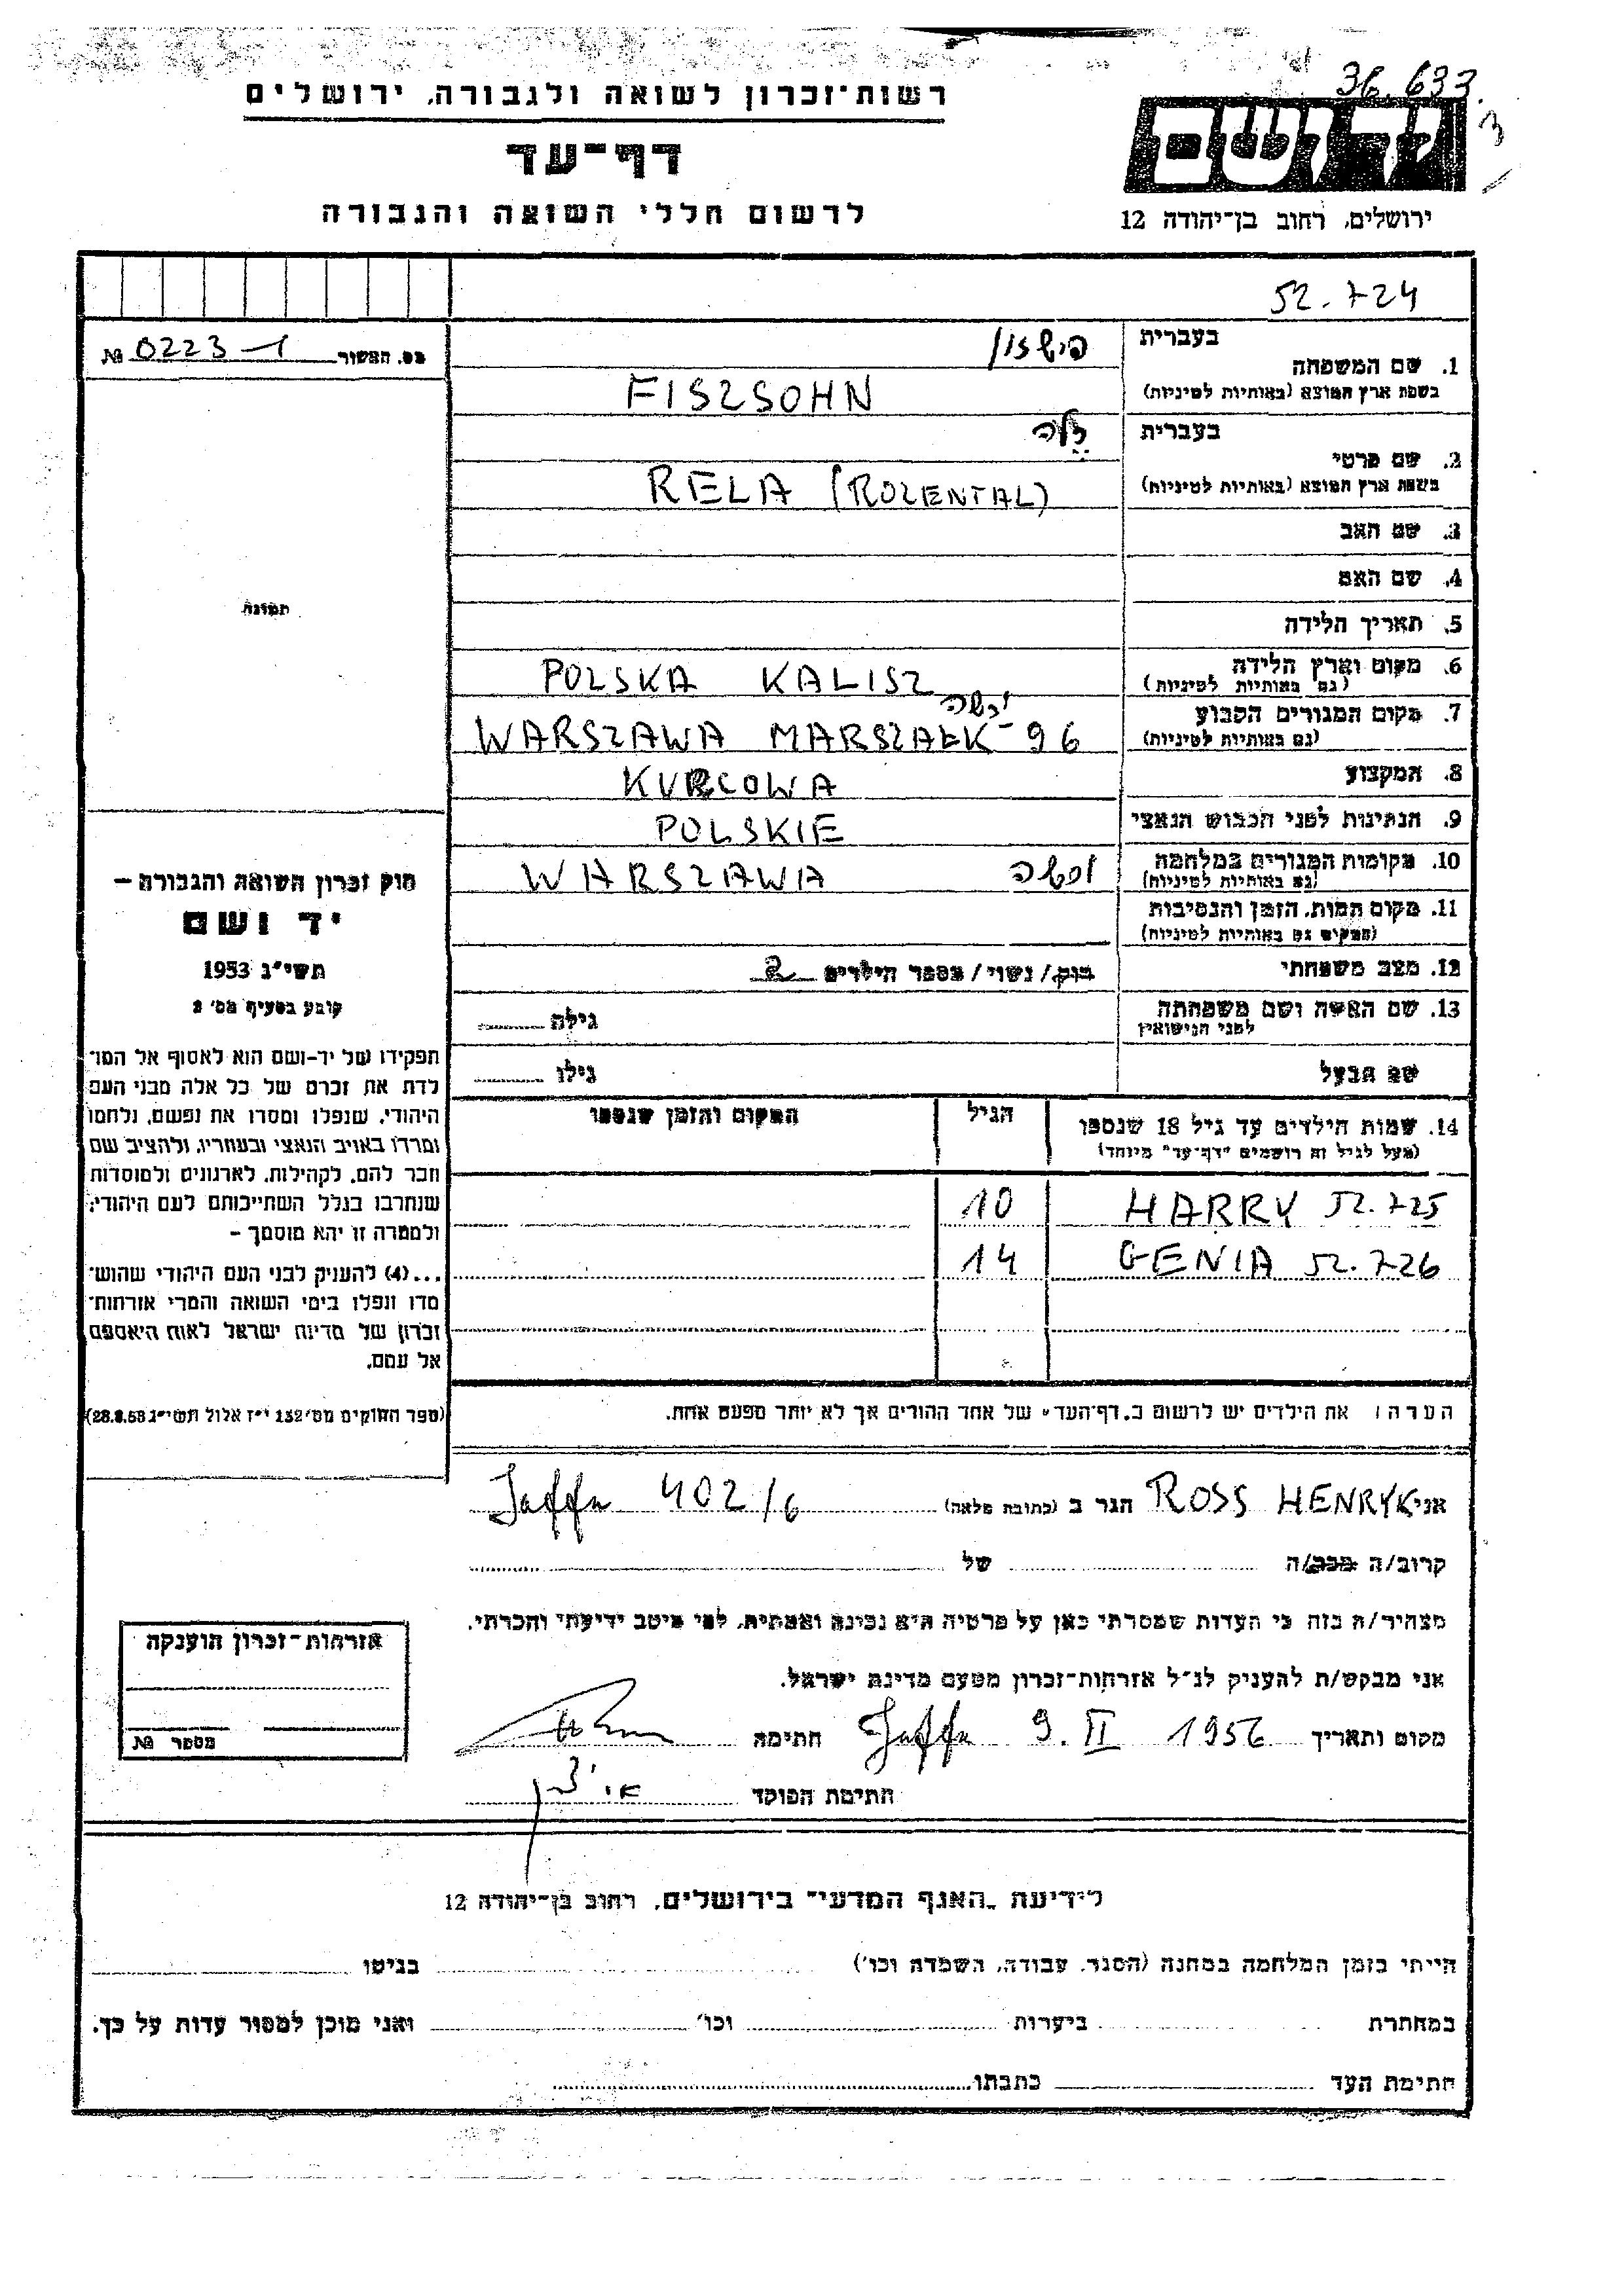 36.633
3
רשות־זכרון לשואה ולגבורה, ירושלים
דף־עד
לרשום חללי השואה והגבורה
ירושלים, רחוב בן־יהודה 12
52.724
מס. המשור № 0223-1
בעברית
1. שם המשפחה
בשפת ארץ המוצא (באותיות לטיניות) FISZSOHN
בעברית
2. שם פרטי
בשפת ארץ המוצא (באותיות לטיניות) RELA (ROZENTAL)
3. שם האב
4. שם האם
5. תאריך הלידה
6. מקום וארץ הלידה
(גם באותיות לטיניות) POLSKA KALISZ
7. מקום המגורים הקבוע
(גם באותיות לטיניות) WARSZAWA MARSZAŁK 96
8. המקצוע KURCOWA
9. הנתינות לפני הכבוש הנאצי POLSKIE
10. מקומות המגורים במלחמה
(גם באותיות לטיניות) WARSZAWA ורשה
11. מקום המות, הזמן והנסיבות
(המקום גם באותיות לטיניות)
12. מצב משפחתי רוק/נשוי/מספר הילדים 2
13. שם האשה ושם משפחתה
לפני הנישואין גילה
שם הבעל גילו
14. שמות הילדים עד גיל 18 שנספו הגיל המקום והזמן שנספו
(מעל לגיל זה רושמים "דף־עד" מיוחד)
HARRY 52.725 10
GENIA 52.726 14
הערה: את הילדים יש לרשום ב„דף־העד" של אחד ההורים אך לא יותר מפעם אחת.
תמונה
חוק זכרון השואה והגבורה –
יד ושם
תשי"ג 1953
קובע בסעיף מס' 2
תפקידו של יד-ושם הוא לאסוף אל המו־
לדת את זכרם של כל אלה מבני העם
היהודי, שנפלו ומסרו את נפשם, נלחמו
ומרדו באויב הנאצי ובעוזריו, ולהציב שם
וזכר להם, לקהילות, לארגונים ולמוסדות
שנחרבו בגלל השתייכותם לעם היהודי;
ולמטרה זו יהא מוסמך –
...(4) להעניק לבני העם היהודי שהוש־
מדו ונפלו בימי השואה והמרי אזרחות־
זכרון של מדינת ישראל לאות היאספם
אל עמם.
(ספר החוקים מס' 132 י"ז אלול תשי"ג 28.8.53)
אני ROSS HENRYK הגר ב (כתובת מלאה) Jaffa 402/6
קרוב/ה מכר/ה של
מצהיר/ה בזה כי העדות שמסרתי כאן על פרטיה היא נכונה ואמתית, לפי מיטב ידיעתי והכרתי.
אני מבקש/ת להעניק לנ"ל אזרחות־זכרון מטעם מדינת ישראל.
מקום ותאריך Jaffa 9. II 1956 חתימה
חתימת הפוקד
אזרחות־זכרון הוענקה
מספר №
לידיעת „האגף המדעי" בירושלים, רחוב בן־יהודה 12
הייתי בזמן המלחמה במחנה (הסגר, עבודה, השמדה וכו') בגיטו
במחתרת ביערות וכו' ואני מוכן למסור עדות על כך.
חתימת העד כתבתו